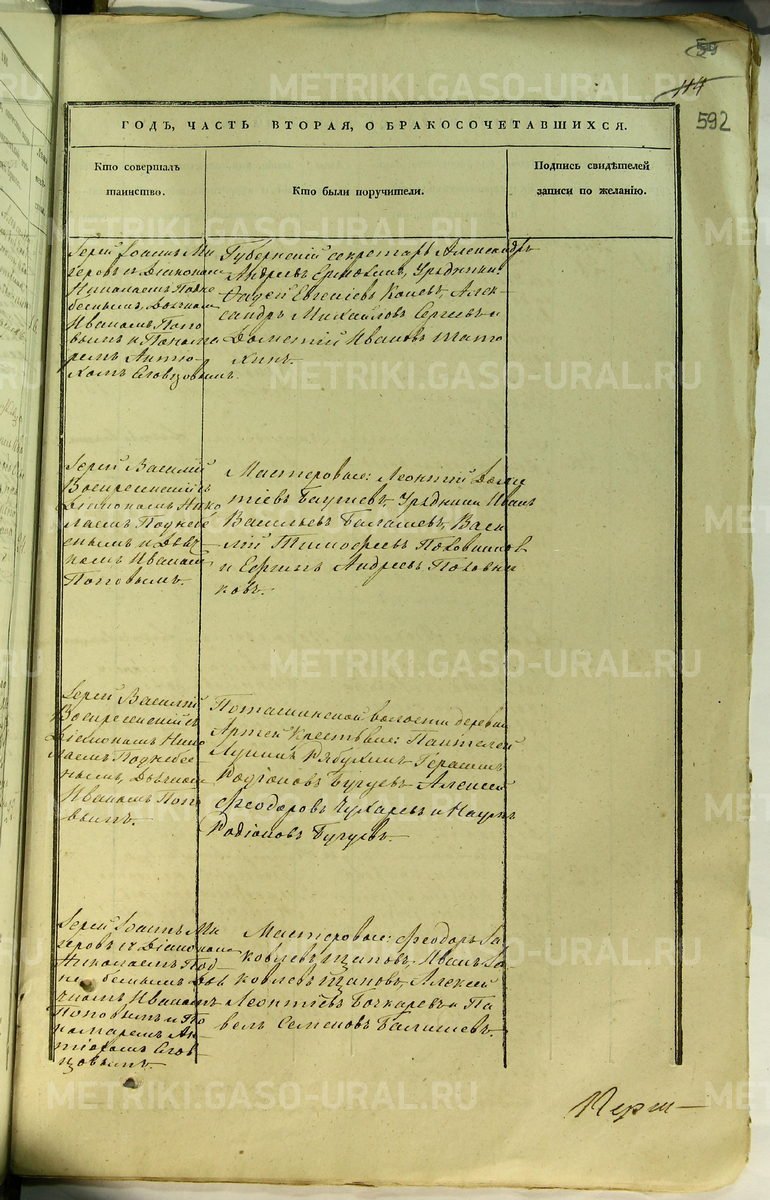 59
114
592
ГОДЪ, ЧАСТЬ ВТОРАЯ, О БРАКОСОЧЕТАВШИХСЯ.
Кто совершалъ
таинство.
Кто были поручители.
Подпись свидѣтелей
записи по желанію.
Іерей Іоаннъ Ми
геровъ съ Діакономъ
Николаемъ Подне
беснымъ, Дьячкомъ
Иваномъ Попо
вымъ и Понома
ремъ Антіо
хомъ Словцовымъ.
Губернскій секретарь Александръ
Андреевъ Ермохинъ, Урядники
Фадей Евгеніевъ Конев, Алек
сандръ Михайловъ Сергѣевъ и
Дометій Ивановъ Шато
хинъ.
Іерей Василій
Воскресенскій съ
Діякономъ Нико
лаемъ Поднебе
снымъ и Дьяч
комъ Иваномъ
Поповымъ.
Мастеровые: Леонтій Доме
тіевъ Баушев, Урядники Иванъ
Васильевъ Балашевъ, Васи
лій Тимофеевъ Половников
и Сергий Андреевъ Половни
ковъ.
Іерей Василій
Воскресенскій съ
Діякономъ Нико
лаемъ Поднебе
снымъ, Дьячкомъ
Иваномъ Попо
вымъ.
Поташинской волости деревни
Артей Крестьяне: Пантелей
Лупинъ Рябухинъ Герасимъ
Родіоновъ Бугуевъ Алексей
Феодоровъ Чухаревъ и Наумъ
Родіоновъ Бугуевъ.
Іерей Іоаннъ Ми
геровъ съ Діакономъ
Николаемъ Под
небеснымъ Дья
чкомъ Иваномъ
Поповымъ и По
номаремъ Ан
тіохомъ Слов
цовымъ.
Мастеровые: Феодоръ Іа
ковлевъ Щаповъ, Иванъ Іа
ковлевъ Щаповъ, Алексей
Леонтіевъ Бочкаревъ и Па
велъ Семеновъ Балашевъ.
METRIKI.GASO-URAL.RU